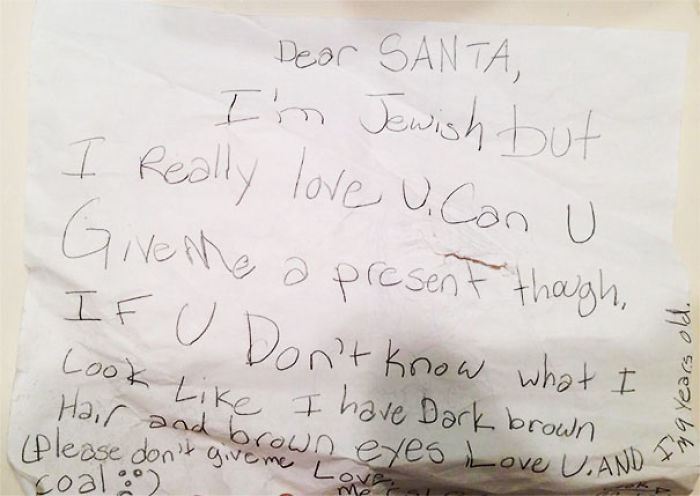 Dear SANTA,
I'm Jewish but
I Really love U. Can U
Give Me a present though.
IF U Don't know what I
Look Like I have Dark brown
Hair and brown eyes Love U. AND I'm 9 years old.
(Please don't give me Love,
coal :) me